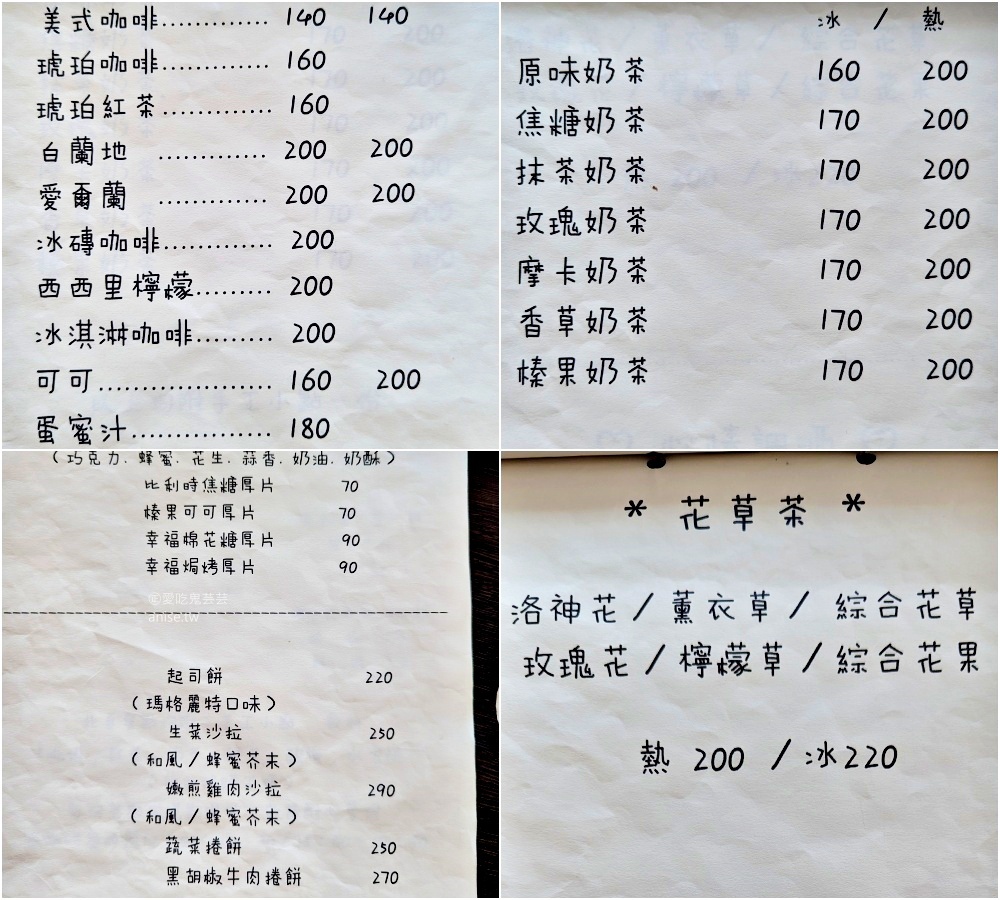 美式咖啡............ 140 140
琥珀咖啡............ 160
琥珀紅茶............ 160
白蘭地 ............ 200 200
愛爾蘭 ............ 200 200
冰磚咖啡............ 200
西西里檸檬......... 200
冰淇淋咖啡......... 200
可可..................... 160 200
蛋蜜汁................. 180
冰 / 熱
原味奶茶 160 200
焦糖奶茶 170 200
抹茶奶茶 170 200
玫瑰奶茶 170 200
摩卡奶茶 170 200
香草奶茶 170 200
榛果奶茶 170 200
(巧克力、蜂蜜、花生、蒜香、奶油、奶酥)
比利時焦糖厚片 70
榛果可可厚片 70
幸福棉花糖厚片 90
幸福焗烤厚片 90
©愛吃鬼芸芸
anise.tw
起司餅 220
(瑪格麗特口味)
生菜沙拉 250
(和風/蜂蜜芥末)
嫩煎雞肉沙拉 290
(和風/蜂蜜芥末)
蔬菜捲餅 250
黑胡椒牛肉捲餅 270
* 花草茶 *
洛神花/薰衣草/綜合花草
玫瑰花/檸檬草/綜合花果
熱 200 /冰220